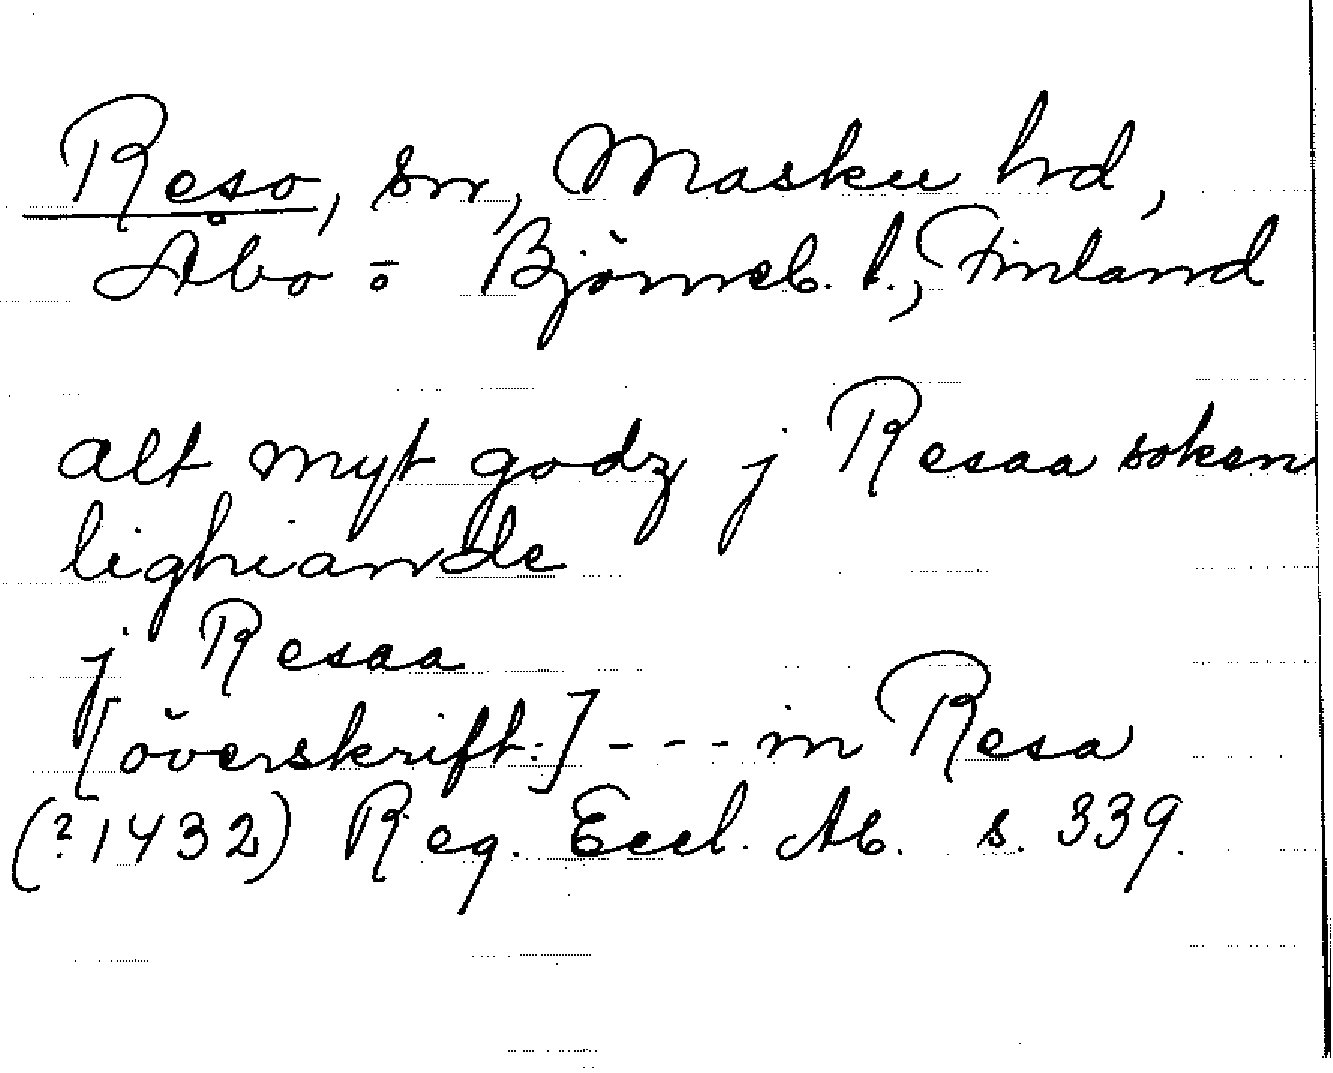 Reso, sn, Masku hd,
Åbo - o Björneb. l., Finland
alt myt godz j Resaa soken
lighiande
j Resaa
[överskrift:] - - - in Resa
(?1432) Reg. Eccl. Ab. s. 339.